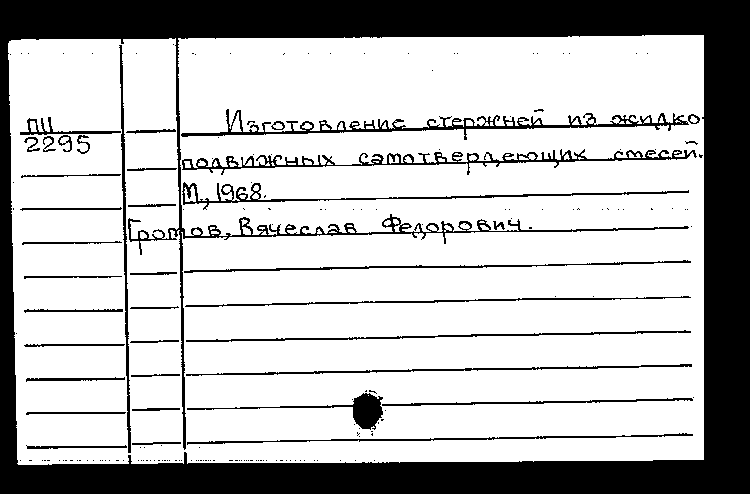 ПИ Изготовление стержней из жидко-
2295
подвижных самотвердеющих смесей.
М., 1968.
Громов, Вячеслав Федорович.